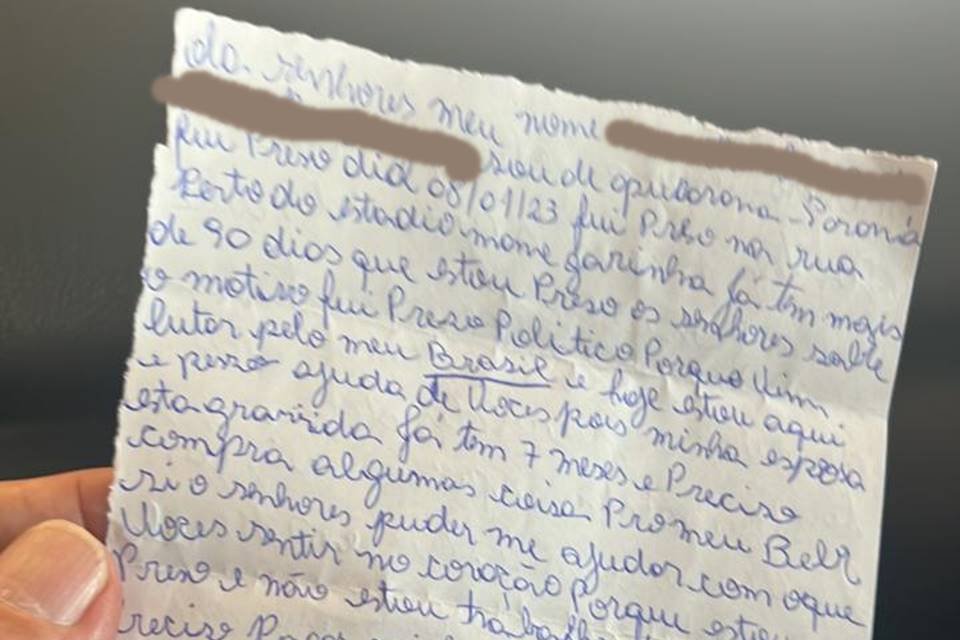 do. senhores meu nome
sou de apucarana - Paraná
fui Preso dia 08/01/23 fui Preso na rua
Perto do estadio mome garinha já tem mais
de 90 dias que estou Preso os senhores sabe
o motivo fui Preso Politico Porque Vim
lutar pelo meu Brasil e hoje estou aqui
e pesso ajuda de Voces pois minha esposa
esta gravida já tem 7 meses e Preciso
compra algumas coisa Pro meu Bebe
si o senhores puder me ajudar com oque
Voces sentir no coração Porque estou
Preso e não estou trabalh
Preciso Pagar